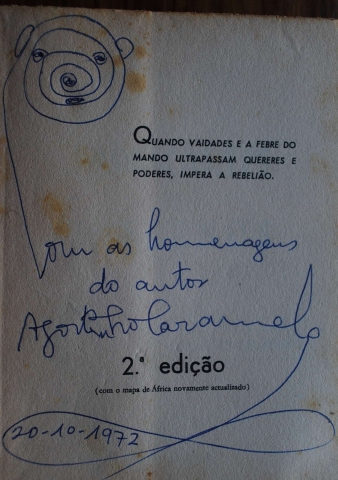 QUANDO VAIDADES E A FEBRE DO
MANDO ULTRAPASSAM QUERERES E
PODERES, IMPERA A REBELIÃO.
Com as homenagens
do autor
Agostinho Caramelo
2.ª edição
(com o mapa de África novamente actualizado)
20-10-1972